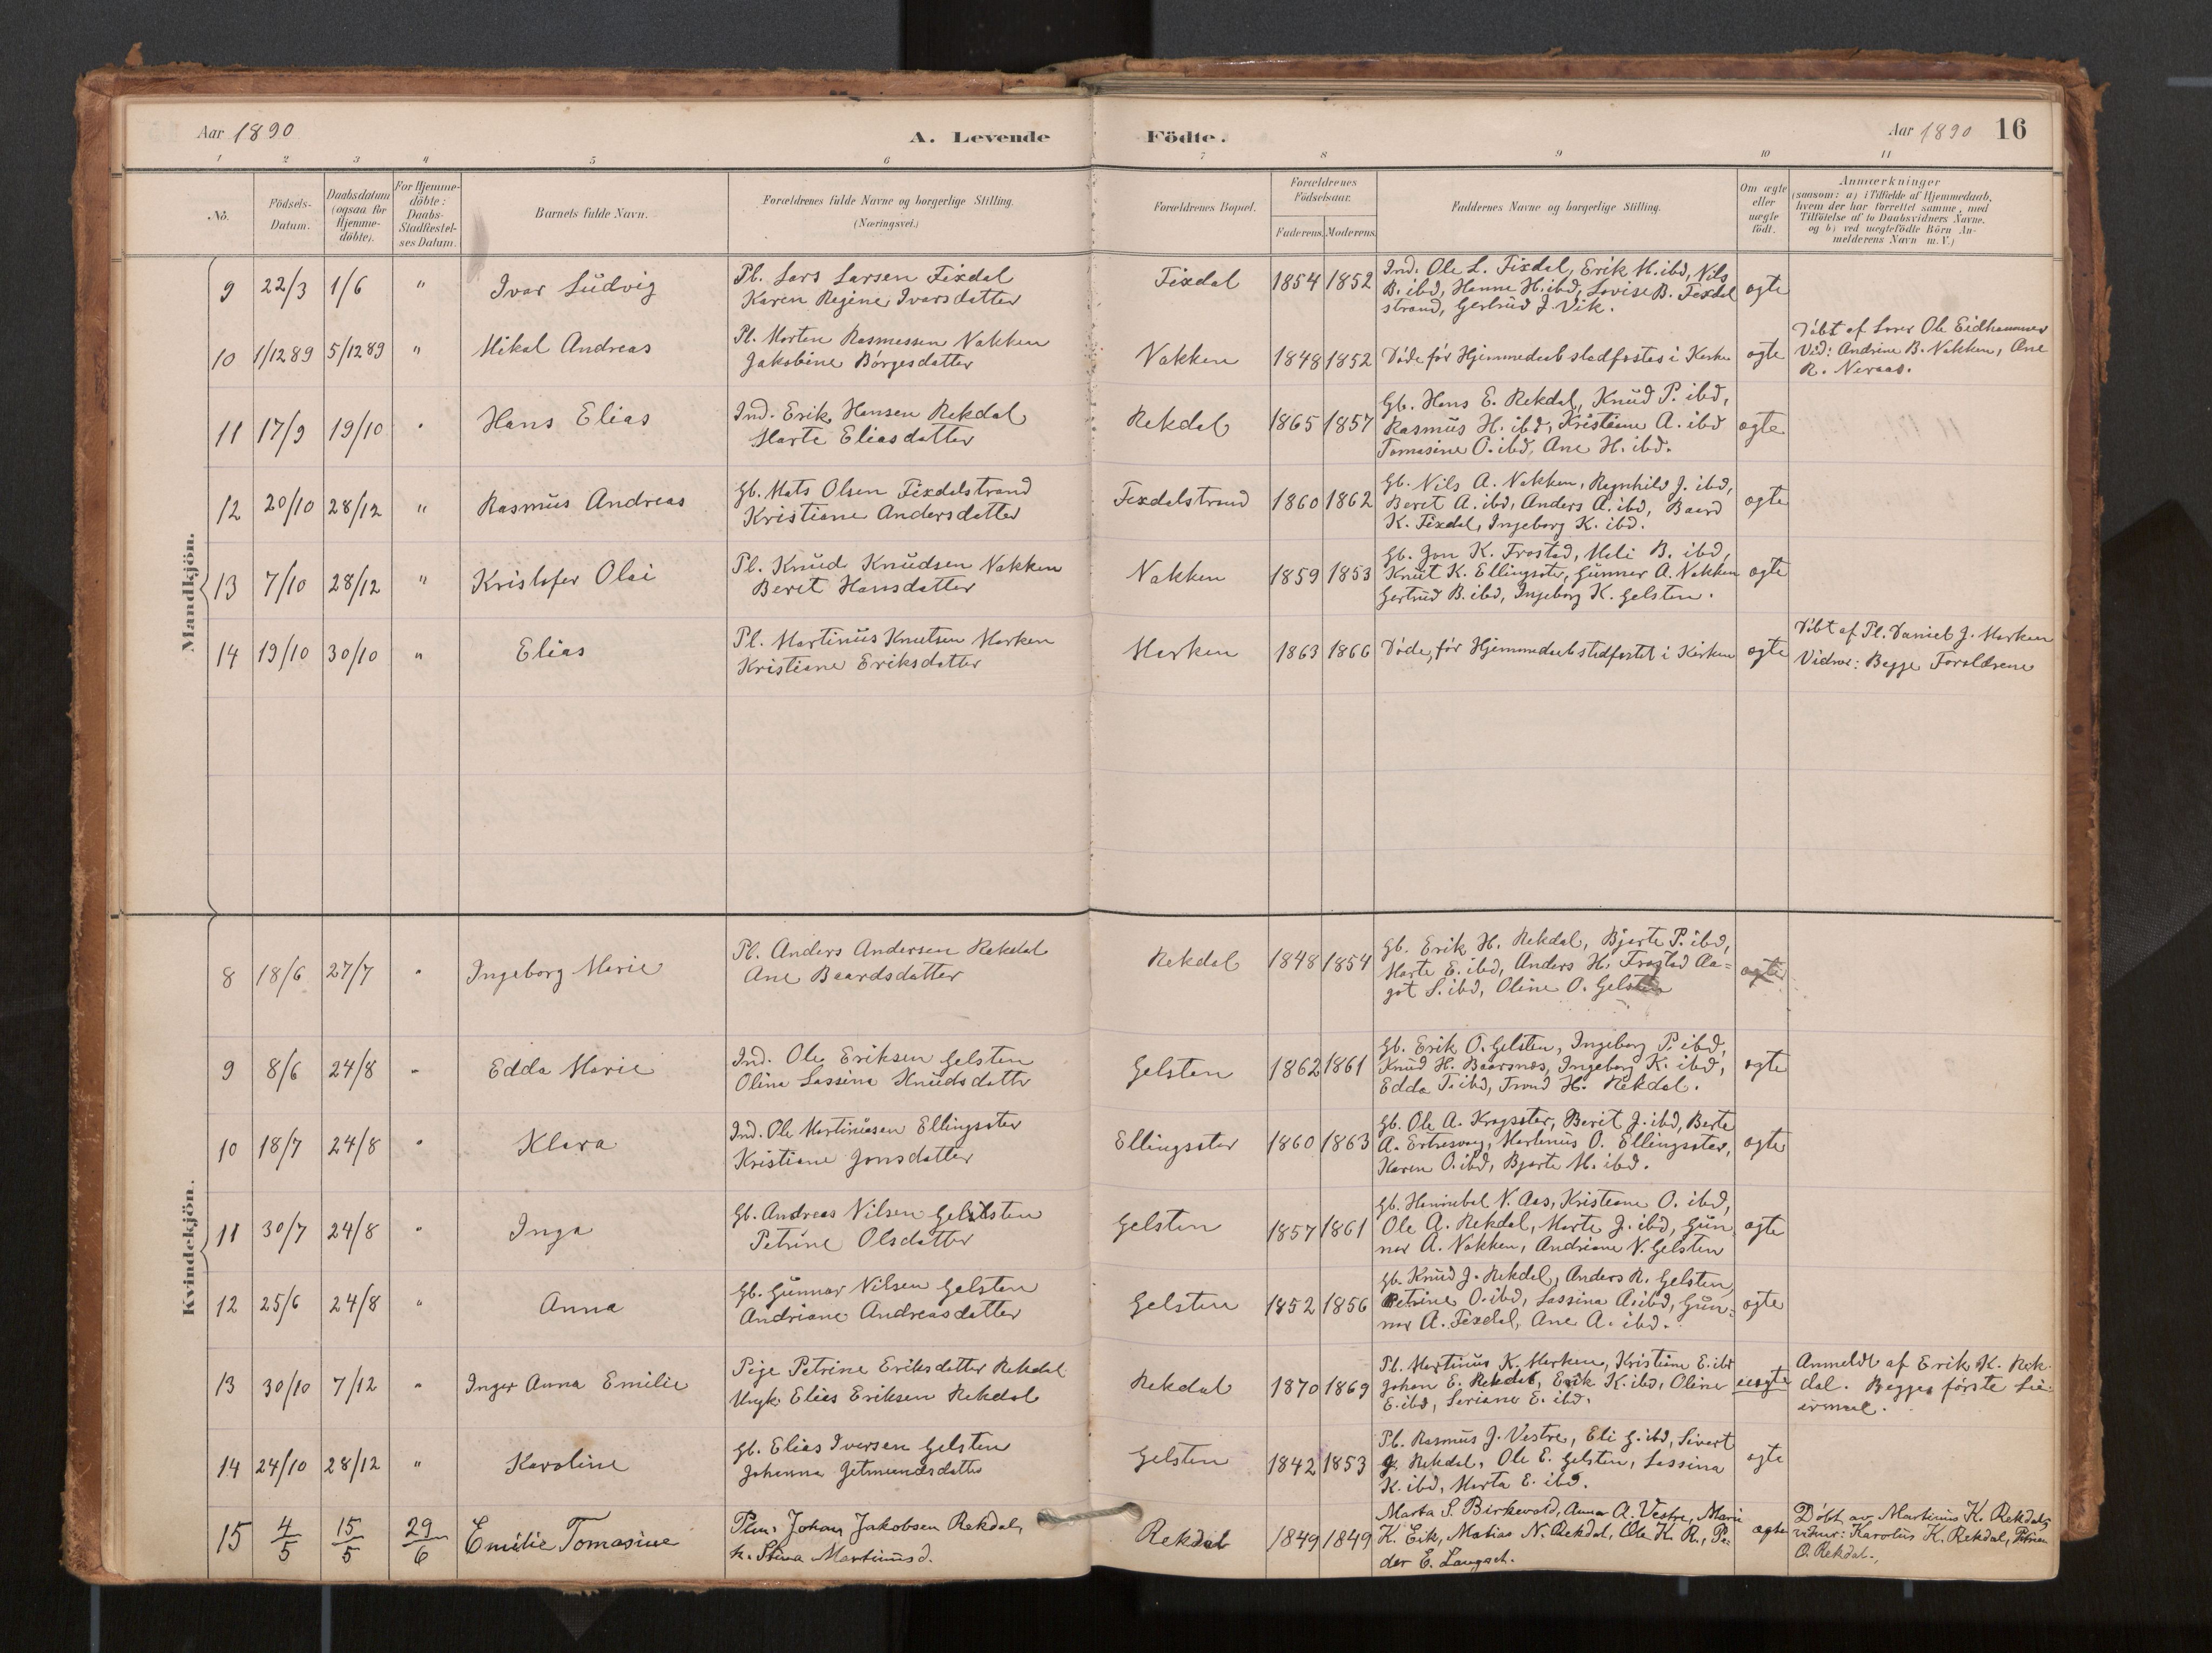 Aar 1890
A. Levende
Födte.
Aar 1890
16
1 2 3 4 5 6 7 8 9 10 11
No.
Födsels-
Datum.
Daabsdatum
(ogsaa for
Hjemme-
döbte).
For Hjemme-
döbte:
Daabs-
Stadfæstel-
ses Datum.
Barnets fulde Navn.
Forældrenes fulde Navne og borgerlige Stilling.
(Næringsvei.)
Forældrenes Bopæl.
Forældrenes
Födselsaar.
Faderens. Moderens.
Faddernes Navne og borgerlige Stilling.
Om ægte
eller
uægte
födt.
Anmærkninger
(saasom: a) i Tilfælde af Hjemmedaab,
hvem der har forrettet samme, med
Tilföielse af to Daabsvidners Navne,
og b) ved uægtefödte Börn An-
melderens Navn m. V.)
Mandkjön.
9 22/3 1/6 " Ivar Ludvig
Pl. Lars Larsen Fixdal
Karen Regine Ivarsdatter
Fixdal 1854 1852
Ind. Ole L. Fixdal, Erik M. ibd, Nils
B. ibd, Hanne H. ibd, Lovise B. Fixdal
strand, Gertrud J. Vik.
ægte
10 1/12 89 5/12 89 " Mikal Andreas
Pl. Morten Rasmussen Nakken
Jakobine Börgesdatter
Nakken 1848 1852 Döde för Hjemmedaab stadfæstes i Kirken ægte
Döbt af Lærer Ole Eidhammer
Vid: Andrine B. Nakken, Ane
R. Neraas.
11 17/9 19/10 " Hans Elias
Ind. Erik Hansen Rekdal
Marte Eliasdatter
Rekdal 1865 1857
Gb. Hans E. Rekdal, Knud P. ibd,
Rasmus H. ibd, Kristiane A. ibd
Tomasine O. ibd, Ane H. ibd.
ægte
12 20/10 28/12 " Rasmus Andreas
Gb. Mats Olsen Fixdalstrand
Kristiane Andersdatter
Fixdalstrand 1860 1862
Gb. Nils A. Nakken, Ragnhild J. ibd,
Beret A. ibd, Anders A. ibd, Baard
K. Fixdal, Ingeborg K. ibd.
ægte
13 7/10 28/12 " Kristofer Olai
Pl. Knud Knudsen Nakken
Beret Hansdatter
Nakken 1859 1853
Gb. Jon K. Frostad, Meli B. ibd,
Knut K. Ellingsæter, Gunner A. Nakken
Gertrud B. ibd, Ingeborg K. Gelsten.
ægte
14 19/10 30/10 " Elias
Pl. Martinus Knutsen Marken
Kristiane Eriksdatter
Marken 1863 1866 Döde, för Hjemmedaab stadfæstet i Kirken ægte
Döbt af Pl. Daniel J. Marken
Vidner: Begge Forældrene
Kvindekjön.
8 18/6 27/7 " Ingeborg Marie
Pl. Anders Andersen Rekdal
Ane Baardsdatter
Rekdal 1848 1854
Gb. Erik H. Rekdal, Bjarte P. ibd,
Marte E. ibd, Anders H. Frostad Aa=
got S. ibd, Oline O. Gelsten
ægte
9 8/6 24/8 " Edda Marie
Ind. Ole Eriksen Gelsten
Olina Lassina Knudsdatter
Gelsten 1862 1861
Gb. Erik O. Gelsten, Ingeborg P. ibd,
Knud H. Baarsnes, Ingeborg K. ibd,
Edda T. ibd, Trond H. Rekdal.
ægte
10 18/7 24/8 " Klara
Ind. Ole Martinusen Ellingsæter
Kristiane Jonsdatter
Ellingsæter 1860 1863
Gb. Ole A. Kragsæter, Berit J. ibd, Berte
A. Ertesvaag, Martinus O. Ellingsæter,
Karen O. ibd, Bjarte M. ibd.
ægte
11 30/7 24/8 " Inga
Gb. Andreas Nilsen Gelsten
Petrine Olsdatter
Gelsten 1857 1861
Gb. Hannibal N. Aas, Kristiane O. ibd,
Ole A. Rekdal, Marte J. ibd, Gun
nar A. Nakken, Andriane N. Gelsten
ægte
12 25/6 24/8 " Anna
Gb. Gunnar Nilsen Gelsten
Andriane Andreasdatter
Gelsten 1852 1856
Gb. Knud J. Rekdal, Anders R. Gelsten,
Petrine O. ibd, Lassina A. ibd, Gun=
nar A. Fixdal, Ane A. ibd.
ægte
13 30/10 7/12 " Inger Anna Emilie
Pige Petrine Eriksdatter Rekdal
Ungk. Elias Eriksen Rekdal
Rekdal 1870 1869
Pl. Martinus K. Marken, Kristiane E. ibd
Johan E. Rekdal, Erik K. ibd, Oline
E. ibd, Seriane E. ibd.
uægte
Anmeldt af Erik K. Rek
dal. Begges förste Lei-
ermaal.
14 24/10 28/12 " Karoline
Gb. Elias Iversen Gelsten
Johanna Getmundsdatter
Gelsten 1842 1853
Pl. Rasmus J. Vestre, Eli G. ibd, Sivert
J. Rekdal, Ole E. Gelsten, Lassina
K. ibd, Marta E. ibd.
ægte
15 4/5 15/5 29/6 Emilie Tomasine
Plm. Johan Jakobsen Rekdal,
h. Stina Martinusd.
Rekdal 1849 1849
Marta S. Birkevold, Anna A. Vestre, Marie
K. Eik, Matias N. Rekdal, Ole K. R., Pe=
der E. Langset.
ægte
Döbt av Martinus K. Rekdal,
vidner: Karolus K. Rekdal, Petrine
O. Rekdal.